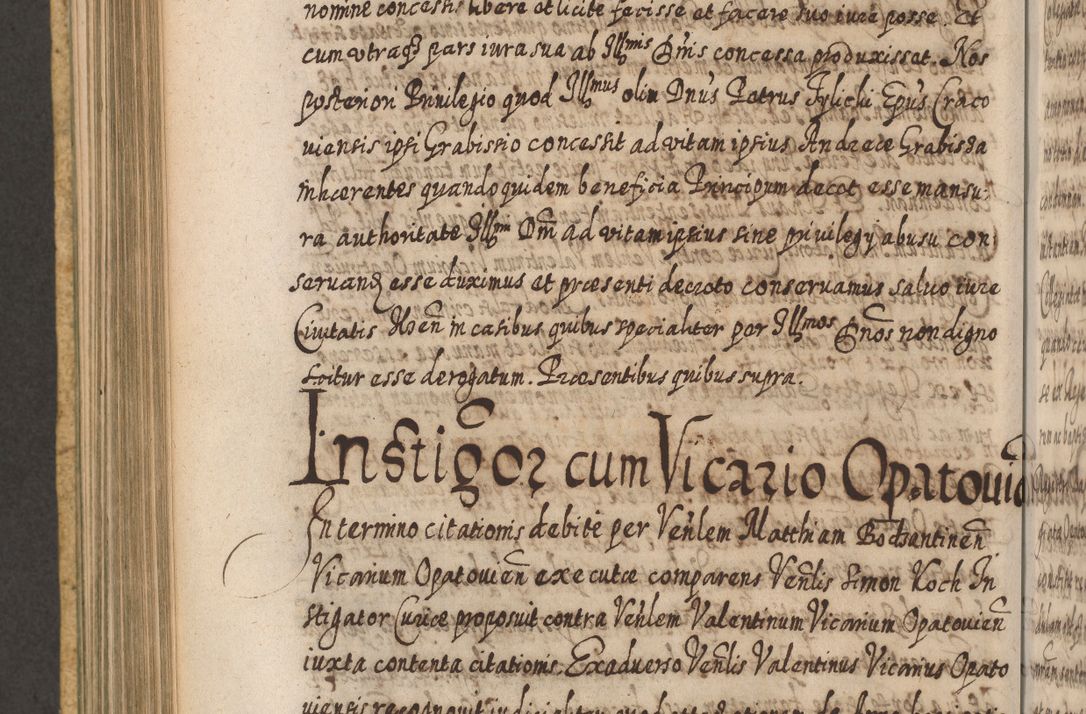 nomine concessis libere et licite fecisse et facere suo iure posse. Et
cum vtraq3 pars iura sua ab Illmis Dnis concessa produxisset. Nos
posteriori Privilegio quod Illmus olim Dnus Petrus Tylicki Epus Craco
viensis ipsi Grabissio concessit ad vitam ipsius Andreæ Grabissa
inhærentes quandoquidem beneficia Principum decet esse mansu:
ra authoritate Illmi Dni ad vitam ipsius sine privilegÿ abusu con
servand esse duximus et præsenti decreto conservamus salvo iure
Civitatis Ilzen in casibus quibus specialiter per Illmos Dnos non digno
scitur esse derogatum. Præsentibus quibus supra.
Instigor cum Vicario Opatovien
In termino citationis debite per Venlem Matthiam Bodzantinen
Vicarium Opatovien executæ comparens Venlis Simon Koch In
stigator Curiæ proposuit contra Venlem Valentinum Vicarium Opatovien
iuxta contenta citationis. Exadverso Venlis Valentinus Vicarius Opato
viensis recognovit iudicialiter quod